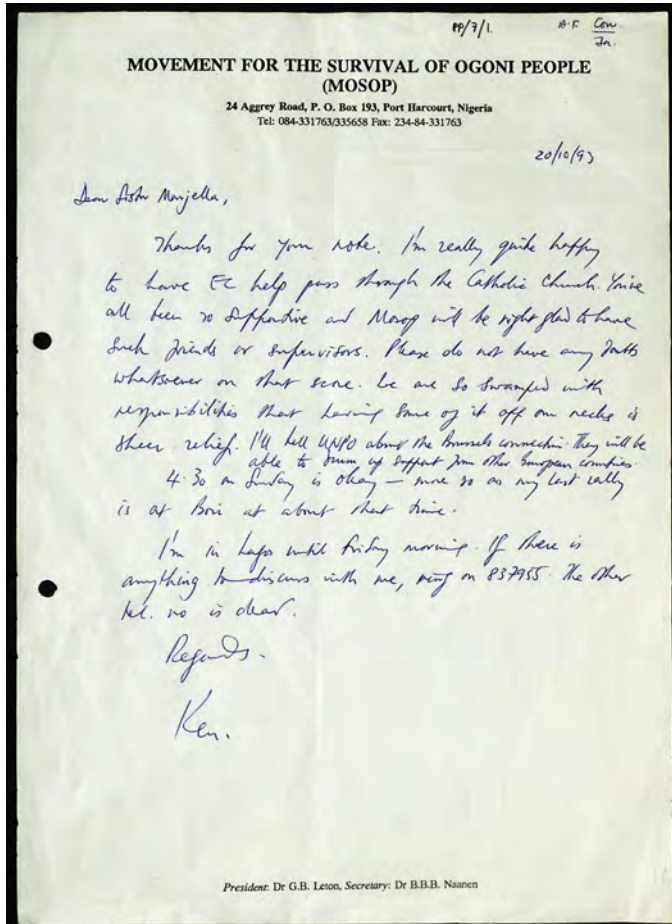 PP/7/1.
A.F. Con
In.
MOVEMENT FOR THE SURVIVAL OF OGONI PEOPLE
(MOSOP)
24 Aggrey Road, P. O. Box 193, Port Harcourt, Nigeria
Tel: 084-331763/335658 Fax: 234-84-331763
20/10/93
Dear Sister Marjella,
Thanks for your note. I'm really quite happy
to have EC help pass through the Catholic Church. You've
all been so supportive and Mosop will be right glad to have
such friends or supervisors. Please do not have any doubts
whatsoever on that score. We are so swamped with
responsibilities that having some of it off our necks is
sheer relief. I'll tell UNPO about the Brussels connection. They will be
able to drum up support from other European countries.
4.30 on Sunday is okay — more so as my last rally
is at Bori at about that time.
I'm in Lagos until Friday morning. If there is
anything to discuss with me, ring on 837955. The other
tel. no is dead.
Regards.
Ken.
President: Dr G.B. Leton, Secretary: Dr B.B.B. Naanen